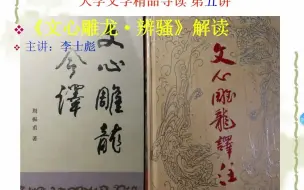 大学文学精品导读 第五讲
《文心雕龙·辨骚》解读
主讲：李士彪
文心雕龍
今譯
周振甫 著
文心雕龍譯注